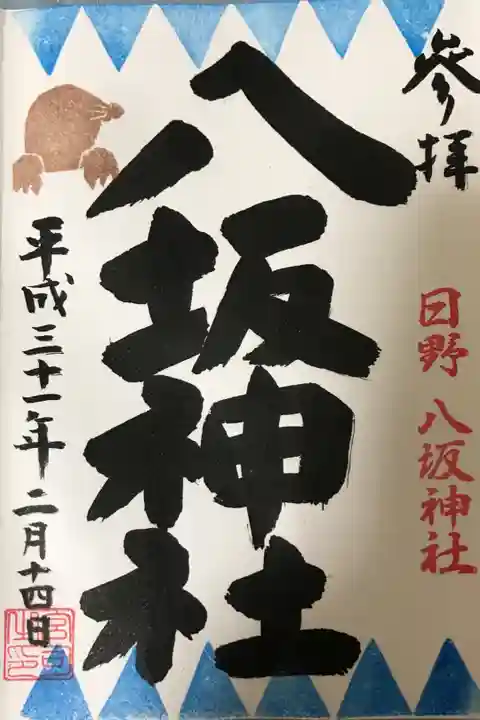 參拝
日野 八坂神社
八坂神社
平成三十一年二月十四日